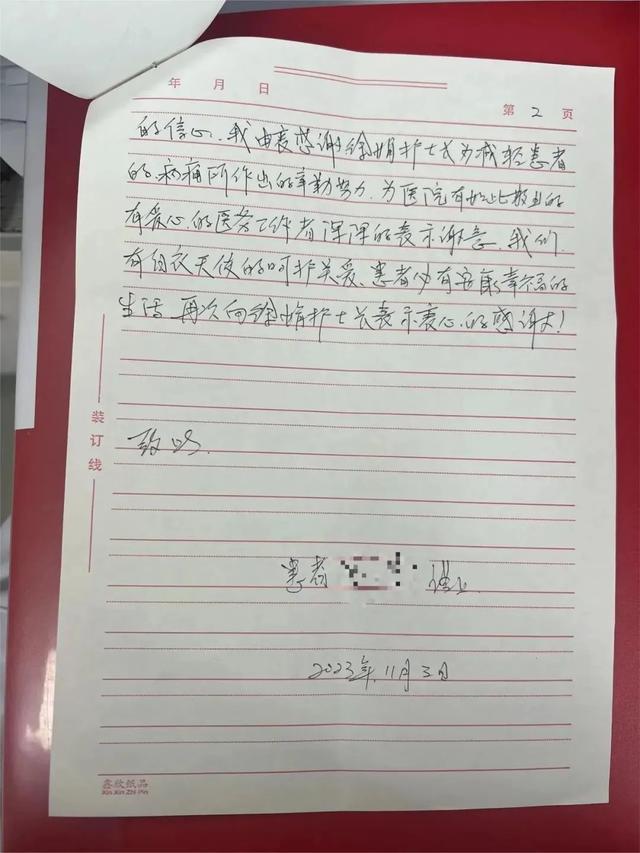 年 月 日
第 2 页
的信心.我由衷感谢徐娟护士长为减轻患者
的病痛所作出的辛勤努力.为医院有如此敬业的
有爱心的医务工作者深深的表示谢意.我们
有白衣天使的呵护关爱、患者必有安康幸福的
生活.再次向徐娟护士长表示衷心的感谢!
致以
装订线
患者 谨上
2023年11月3日
鑫欣纸品
Xin Xin Zhi Pin